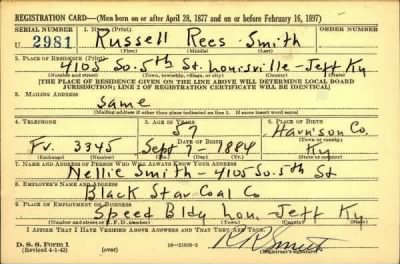 REGISTRATION CARD—(Men born on or after April 28, 1877 and on or before February 16, 1897)
SERIAL NUMBER
1. NAME (Print)
ORDER NUMBER
U 2981
Russell Rees Smith
(First) (Middle) (Last)
2. PLACE OF RESIDENCE (Print)
4105 So. 5th St. Louisville - Jeff Ky
(Number and street) (Town, township, village, or city) (County) (State)
[THE PLACE OF RESIDENCE GIVEN ON THE LINE ABOVE WILL DETERMINE LOCAL BOARD
JURISDICTION; LINE 2 OF REGISTRATION CERTIFICATE WILL BE IDENTICAL]
3. MAILING ADDRESS
Same
[Mailing address if other than place indicated on line 2. If same insert word same]
4. TELEPHONE
5. AGE IN YEARS
6. PLACE OF BIRTH
57
Harrison Co.
DATE OF BIRTH
(Town or county)
Fr. 3345
Sept 7 - 1884
Ky
(Exchange) (Number)
(Mo.) (Day) (Yr.)
(State or country)
7. NAME AND ADDRESS OF PERSON WHO WILL ALWAYS KNOW YOUR ADDRESS
Nellie Smith - 4105 So. 5th St
8. EMPLOYER'S NAME AND ADDRESS
Black Star Coal Co
9. PLACE OF EMPLOYMENT OR BUSINESS
Speed Bldg Lou. - Jeff Ky
(Number and street or R. F. D. number) (Town) (County) (State)
I AFFIRM THAT I HAVE VERIFIED ABOVE ANSWERS AND THAT THEY ARE TRUE.
D. S. S. Form 1
(Revised 4-1-42)
(over)
16—21630-2
R R Smith
(Registrant's signature)